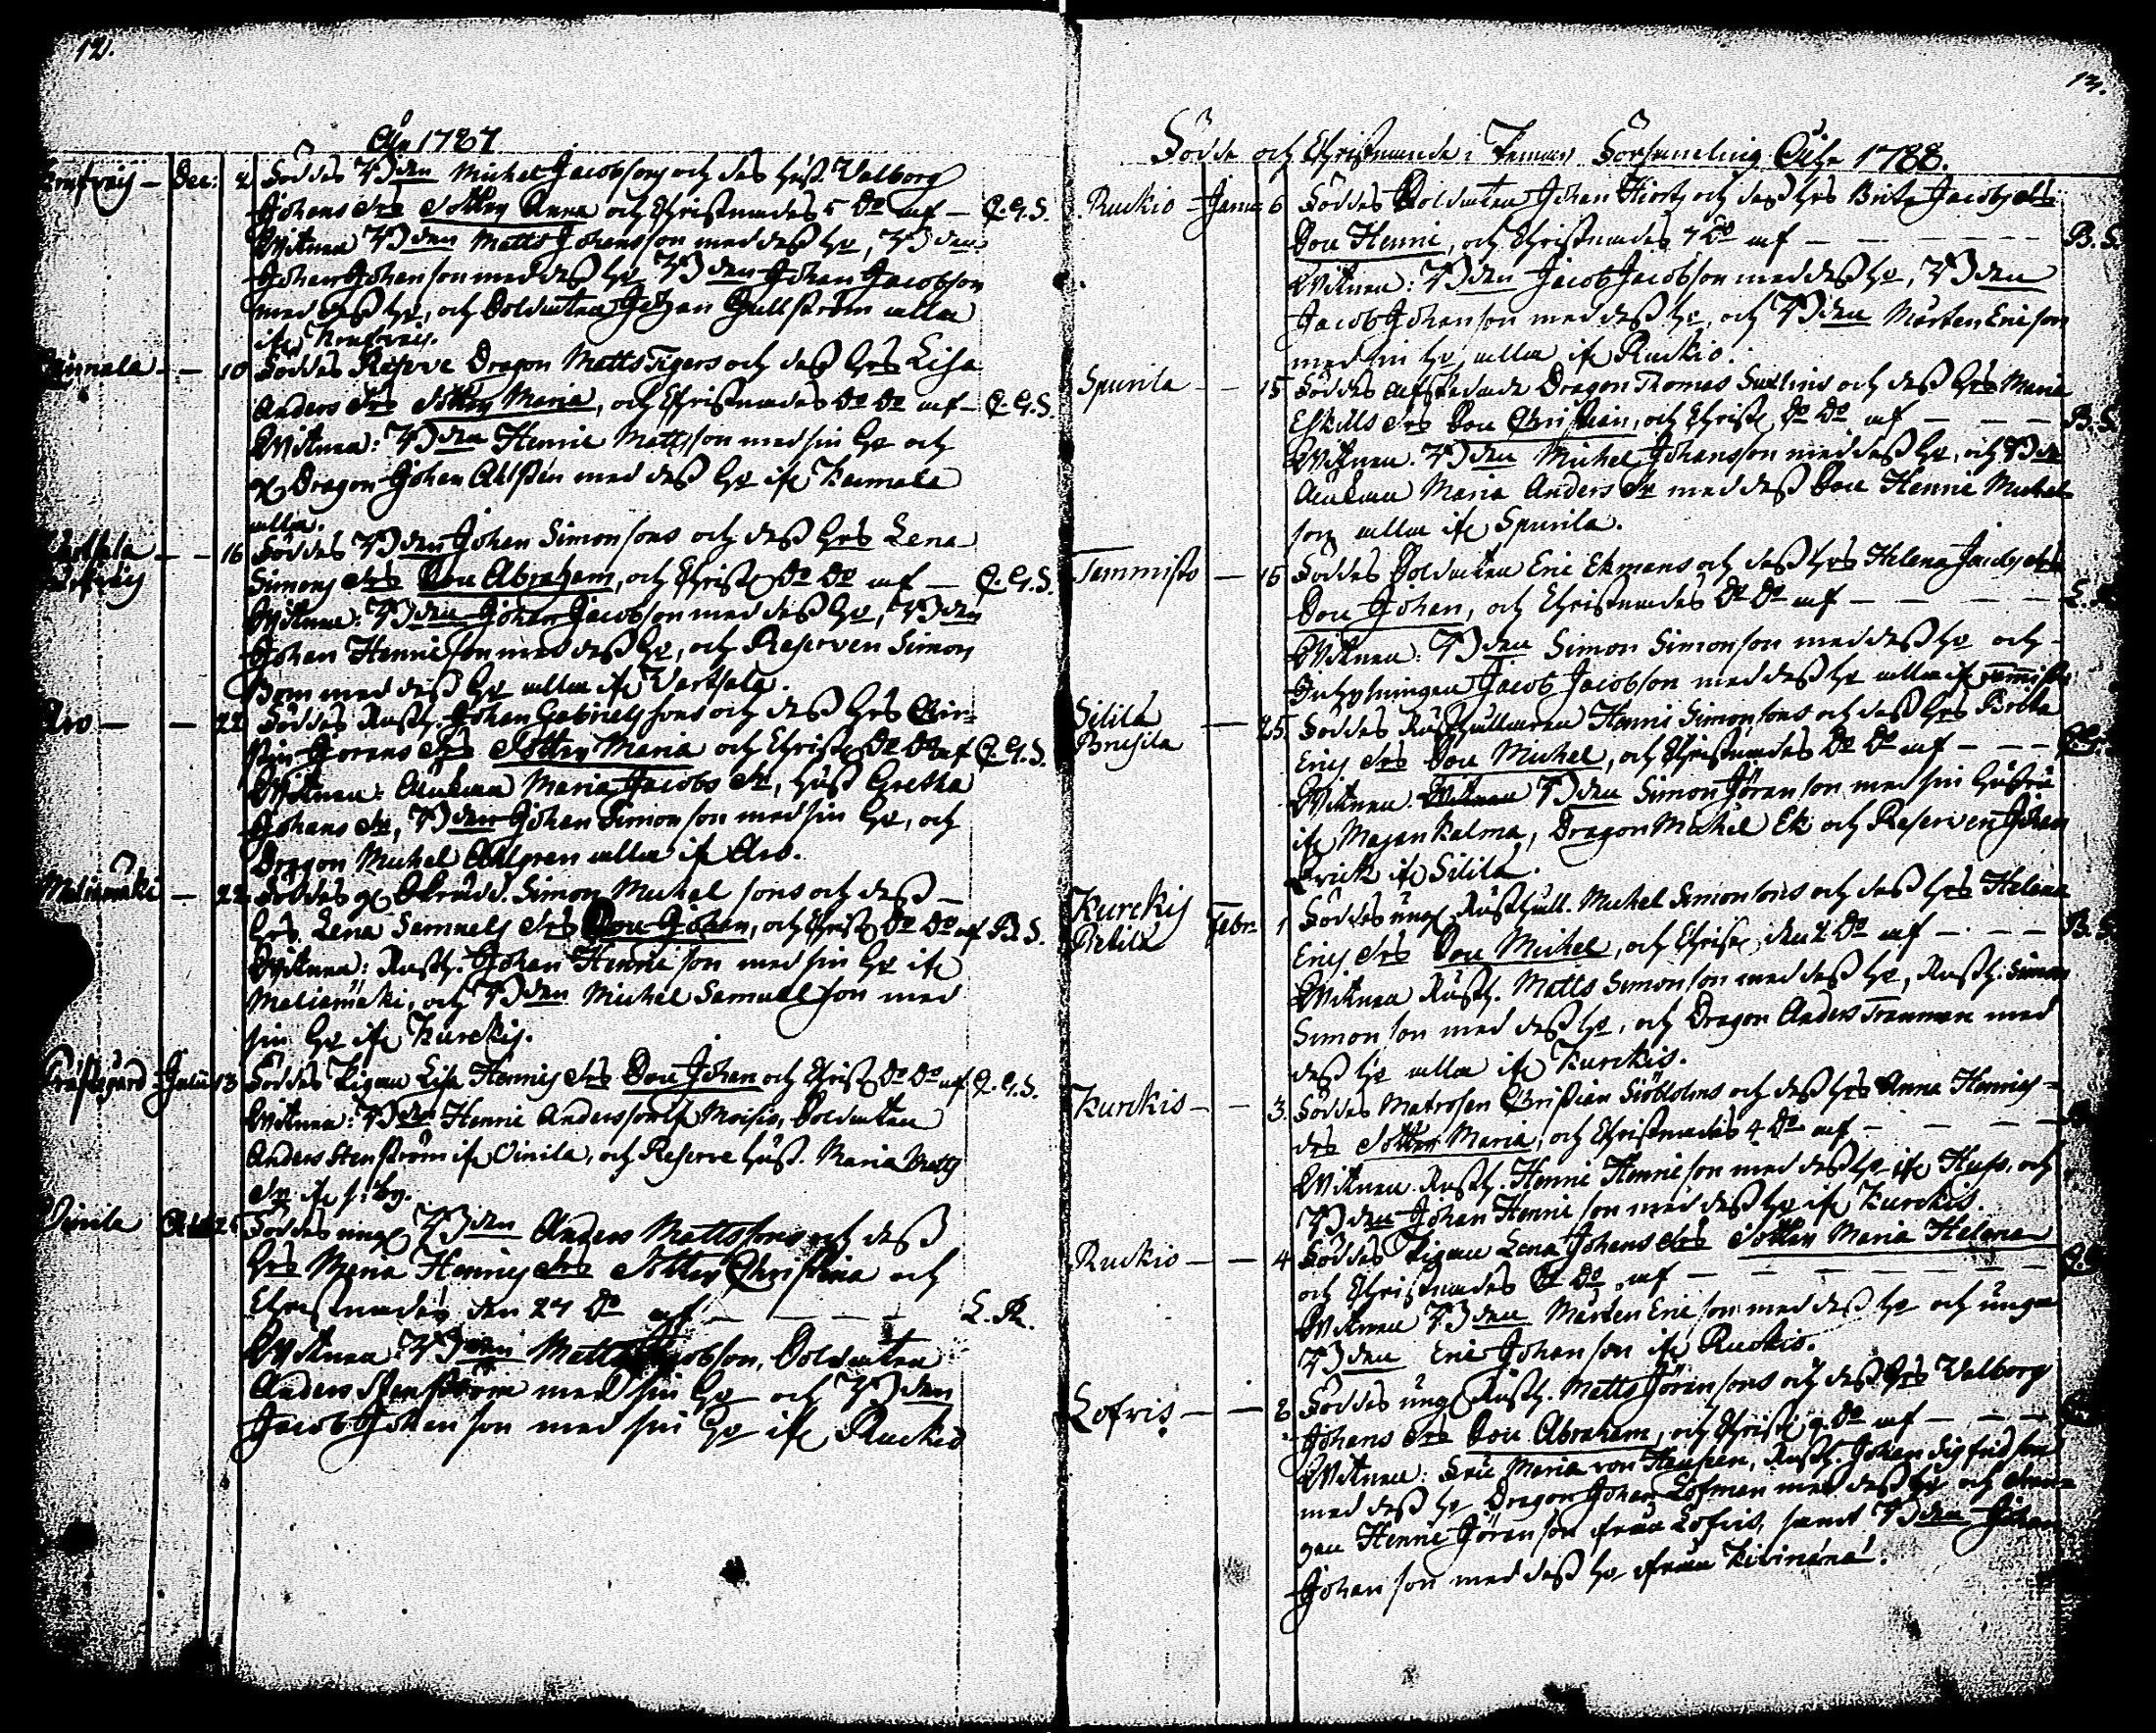 12.
Åhr 1787
Krafvais — Dec: 2 Föddes Bonden Michel Jacobsons och des Hust. Valborg
Johans drs dotter Anna och Christnades 5 do af — C. G. S.
Witnen Bonden Matts Johansson med dess hu, Bonden
Johan Johansson med dess hu, Bonden Johan Jacobson
med dess hu, och Soldaten Johan Gullström alla
ifr. Krafvais.
— — 10 Föddes Reserve Dragon Matts Tigers och dess hrs Lisa
Anders drs dotter Maria, och Christnades do do af — C. G. S.
Witnen: Bonden Henric Mattsson med sin hu och
Dragon Johan Ahlsten med dess hu ifr
alla.
— — 16 Föddes Bonden Johan Simonsons och dess hrs Lena
Simons drs Son Abraham, och Christ. do do af — C. G. S.
Witnen: Bonden Johan Jacobson med dess hu, Bonden
Johan Henricsson med dess hu, och Reserven Simon
Bom med dess hu alla ifr Vartsala.
Aro — — 22 Föddes Rusth. Johan Gabriels sons och dess hrs Chir=
stin Görans drs dotter Maria och Christ. do do af C. G. S.
Witnen: Änkan Maria Jacobs dr, Hust Gretha
Johans dr, Bonden Johan Simonson med sin hu, och
Dragon Michel Ahlgren alla ifr Aro.
Meliemäki — 22 Föddes Simon Michel sons och dess
hrs Lena Samuels drs Son Johan, och Christ. do do af B. S.
Witnen: Rusth. Johan Henric son med sin hu ifr
Meliemäki, och Bonden Michel Samuelsson med
sin hu ifr Kurckis.
Prästgård — Julii 13 Föddes Pigan Lisa Henrics drs Son Johan och Christ do do af C. G. S.
Witnen: Bonden Henric Andersson ifr Moisio, Soldaten
Anders Stenström ifr Vinila, och Reserve Hust. Maria Matts
dr ifr s. by.
Vinila Föddes ung Bonden Anders Mattssons och dess
hrs Maria Henrics drs dotter Christina och
Christnades den 27 do af — — — L. R.
Witnen: Bonden Matts Jacobson, Soldaten
Anders Stenström med sin hu och Bonden
Jacob Johanson med sin hu ifr Ruckio
13.
Födde och Christnade i Pemar Församling Åhr 1788.
Ruckio — Janu 6 Föddes Soldaten Johan Hiort och dess hrs Brita Jacobs drs
Son Henric, och Christnades 7 do af — — — B. S.
Witnen: Bonden Jacob Jacobson med dess hu, Bonden
Jacob Johanson med dess hu, och Bonden Mårten Ericson
med sin hu, alla ifr Ruckio.
Spurila — — 15 Föddes afskedade Dragon Thomas Sunlins och dess hrs Maria
Eskills drs Son Christian, och Christ. do do af — — — B. S.
Witnen. Bonden Michel Johansson med dess hu, och Bonde
Änkan Maria Anders dr med dess Son Henric Michel
son alla ifr Spurila.
Tammisto — 15 Föddes Soldaten Eric Ekmans och dess hrs Helena Jacobs drs
Son Johan, och Christnades do do af — — — —
Witnen. Bonden Simon Simonson med dess hu och
Inhysningen Jacob Jacobson med dess hu alla ifr Tammisto
Silila
Brusila — 25. Föddes Rusthållaren Henric Simonsons och dess hrs Britha
Erics drs Son Michel, och Christnades do do af — — —
Witnen. Witnen Bonden Simon Jöranson med sin hustru
ifr Majankalma, Dragon Michel Ek och Reserven Johan
Brick ifr Silila.
Kurckis
Pietilä Febr. 1 Föddes ung Rusthåll. Michel Simonsons och dess hrs Helena
Erics drs Son Michel, och Christ. den 2 do af — — — B. S.
Witnen Rusth. Matts Simonson med dess hu, Rusth. Simon
Simonson med dess hu, och Dragon Anders Tranman med
dess hu alla ifr Kurckis.
Kurckis — — 3. Föddes Matrosen Christian Siöbloms och dess hrs Anna Henrics
drs dotter Maria, och Christnades 4 do af — — —
Witnen Rusth. Henric Henricson med dess hu ifr och
Bonden Johan Henric son med dess hu ifr Kurckis.
Ruckio — — 4 Föddes Pigan Lena Johans drs dotter Maria Helena
och Christnades do do af — — — — —
Witnen Bonden Mårten Ericson med dess hu och unga
Bonden Eric Johanson ifr Ruckio.
Lofvis — — 8 Föddes ung Rusth. Matts Jöransons och dess hrs Valborg
Johans drs Son Abraham, och Christ. 9 do af — — —
Witnen: Fru Maria von Rusth. Johan Sigfridsson
med dess hu Dragon Johan Lofman med dess hu och drän=
gen Henric Jöranson från Lofvis, samt Bonden Johan
Johanson med dess hu från